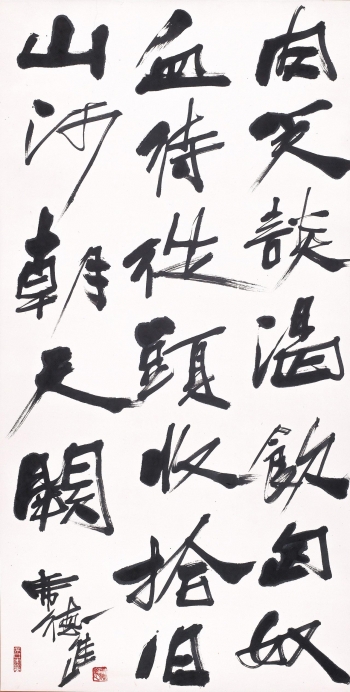 肉笑談渴飲匈奴
血待從頭收拾旧
山河朝天闕
席德進